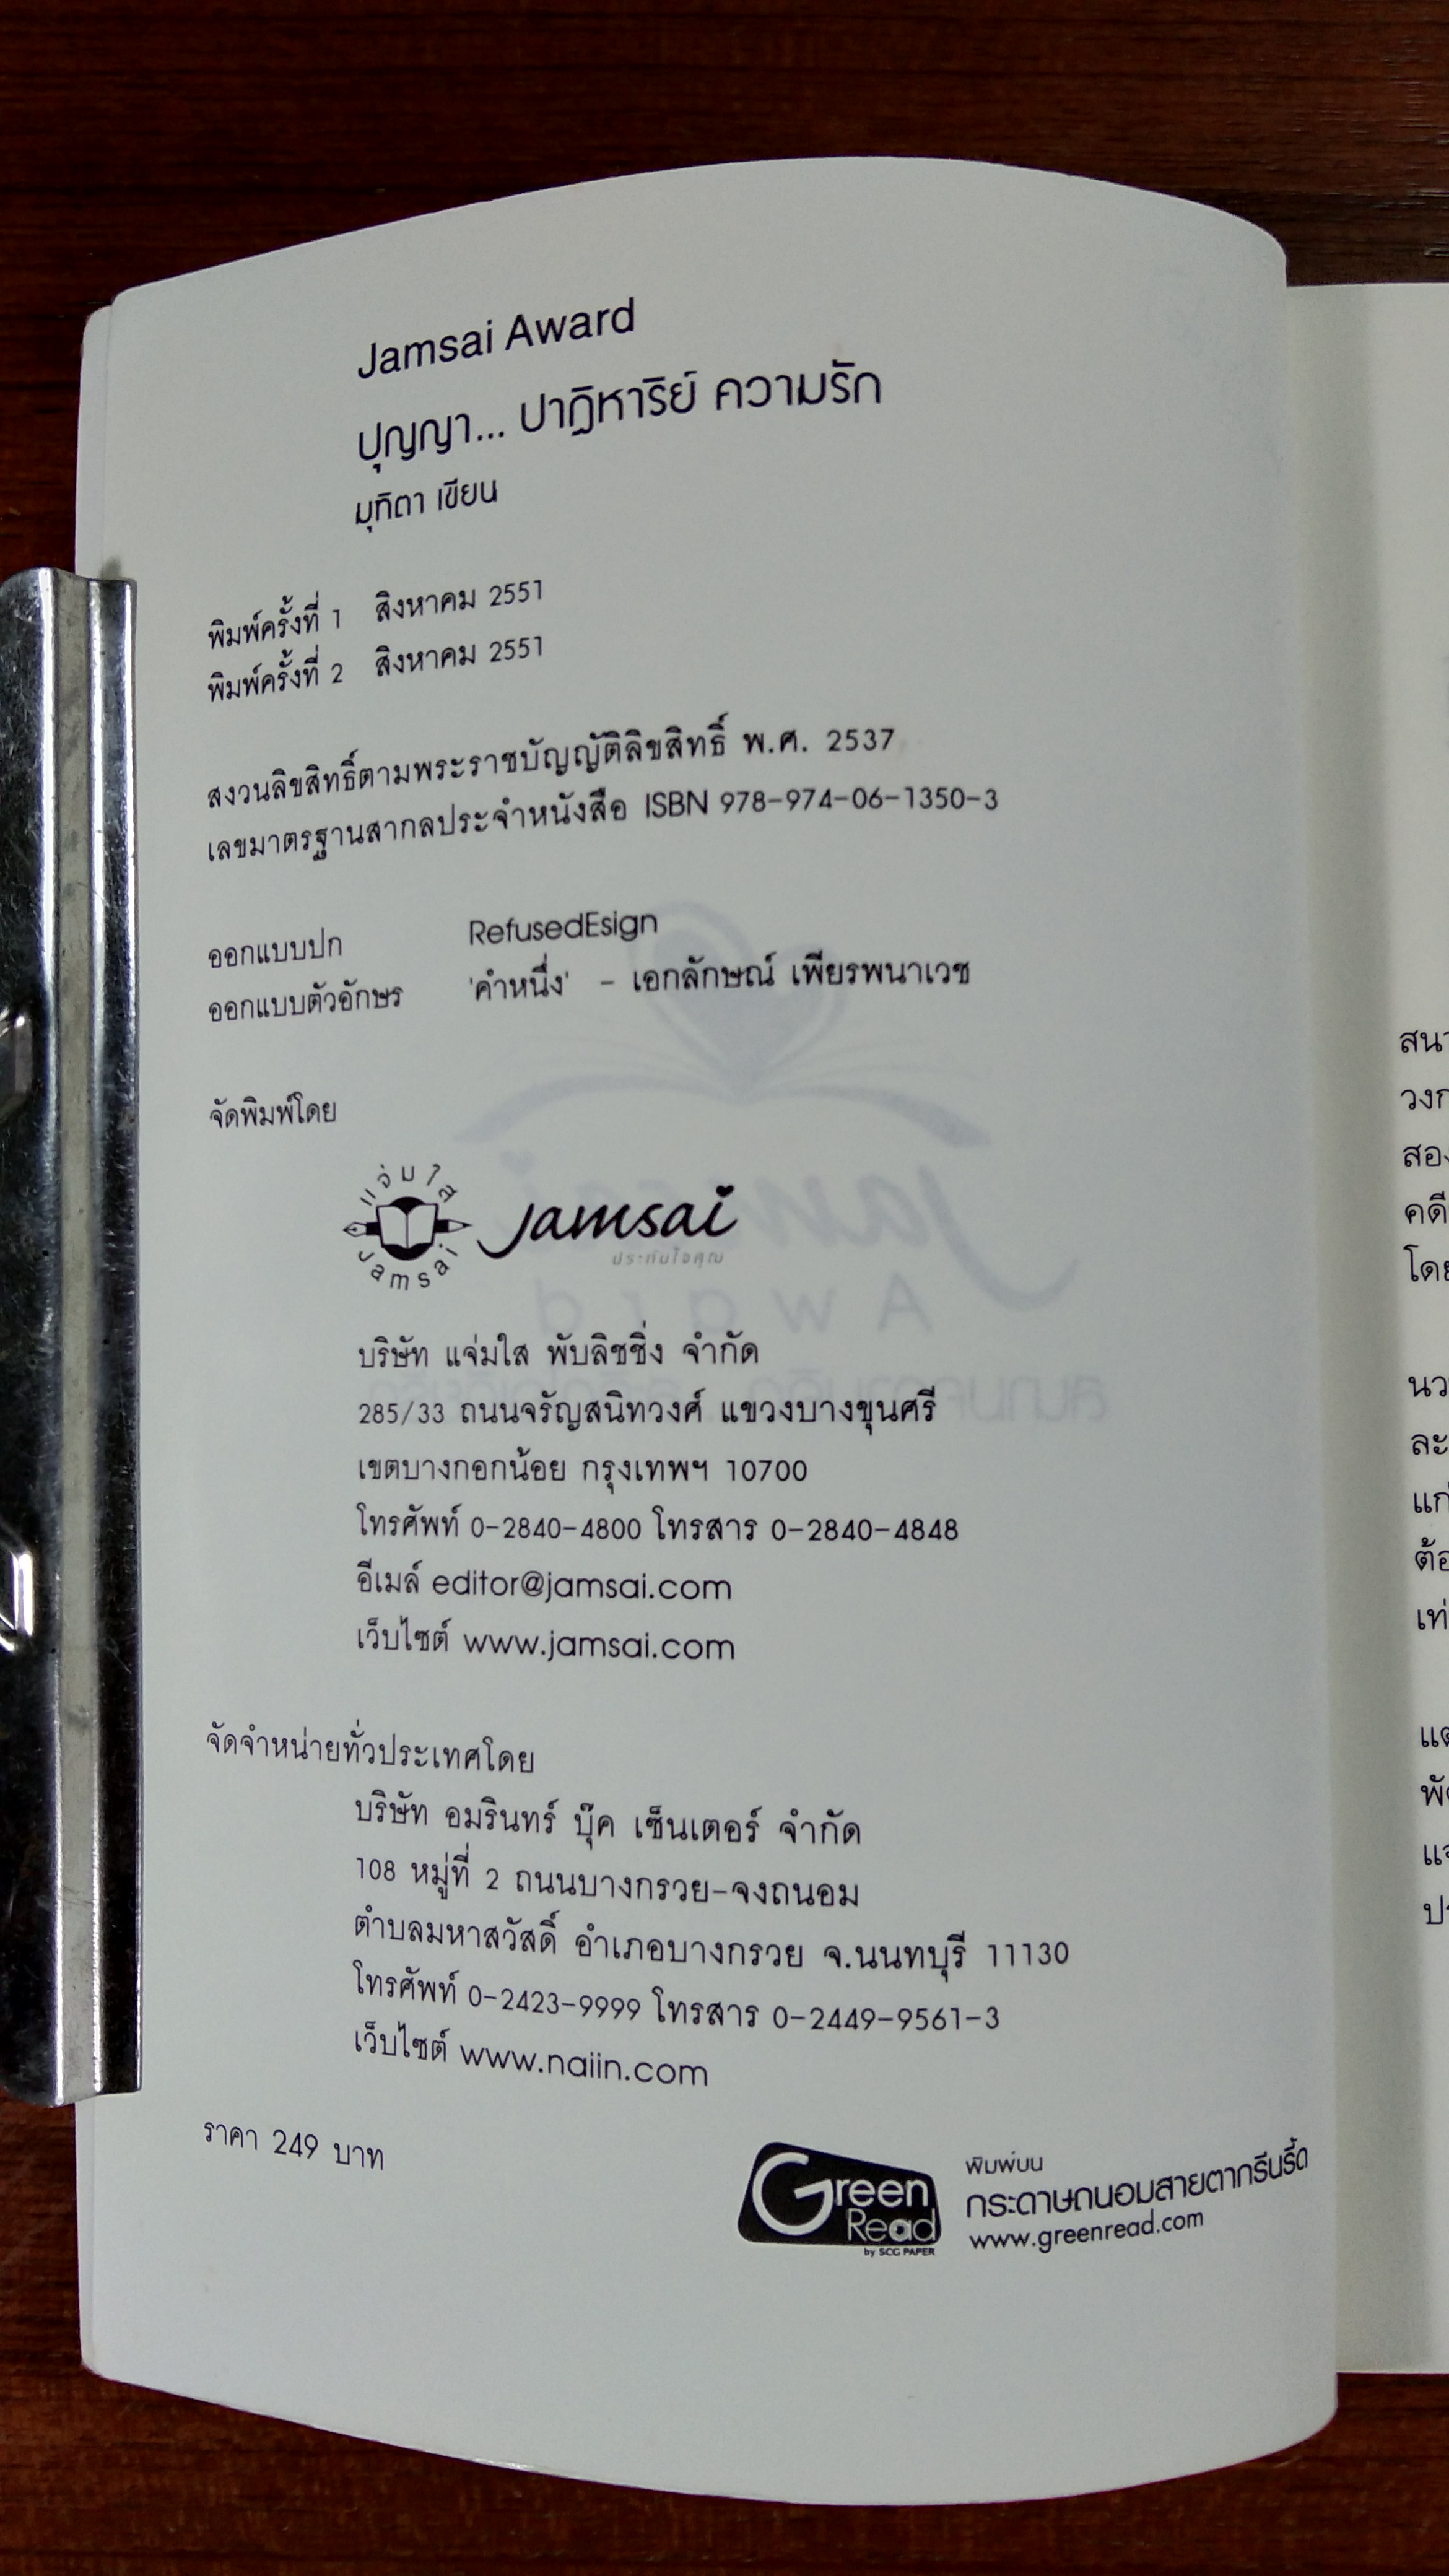 Jamsai Award
ปุญญา... ปาฏิหาริย์ ความรัก
มุทิตา เขียน
พิมพ์ครั้งที่ 1 สิงหาคม 2551
พิมพ์ครั้งที่ 2 สิงหาคม 2551
สงวนลิขสิทธิ์ตามพระราชบัญญัติลิขสิทธิ์ พ.ศ. 2537
เลขมาตรฐานสากลประจำหนังสือ ISBN 978-974-06-1350-3
ออกแบบปก RefusedEsign
ออกแบบตัวอักษร 'คำหนึ่ง' - เอกลักษณ์ เพียรพนาเวช
จัดพิมพ์โดย
แจ่มใส
Jamsai
Jamsai
ประทับใจคุณ
บริษัท แจ่มใส พับลิชชิ่ง จำกัด
285/33 ถนนจรัญสนิทวงศ์ แขวงบางขุนศรี
เขตบางกอกน้อย กรุงเทพฯ 10700
โทรศัพท์ 0-2840-4800 โทรสาร 0-2840-4848
อีเมล์ editor@jamsai.com
เว็บไซต์ www.jamsai.com
จัดจำหน่ายทั่วประเทศโดย
บริษัท อมรินทร์ บุ๊ค เซ็นเตอร์ จำกัด
108 หมู่ที่ 2 ถนนบางกรวย-จงถนอม
ตำบลมหาสวัสดิ์ อำเภอบางกรวย จ.นนทบุรี 11130
โทรศัพท์ 0-2423-9999 โทรสาร 0-2449-9561-3
เว็บไซต์ www.naiin.com
ราคา 249 บาท
Green
Read
by SCG PAPER
พิมพ์บน
กระดาษถนอมสายตากรีนรี้ด
www.greenread.com